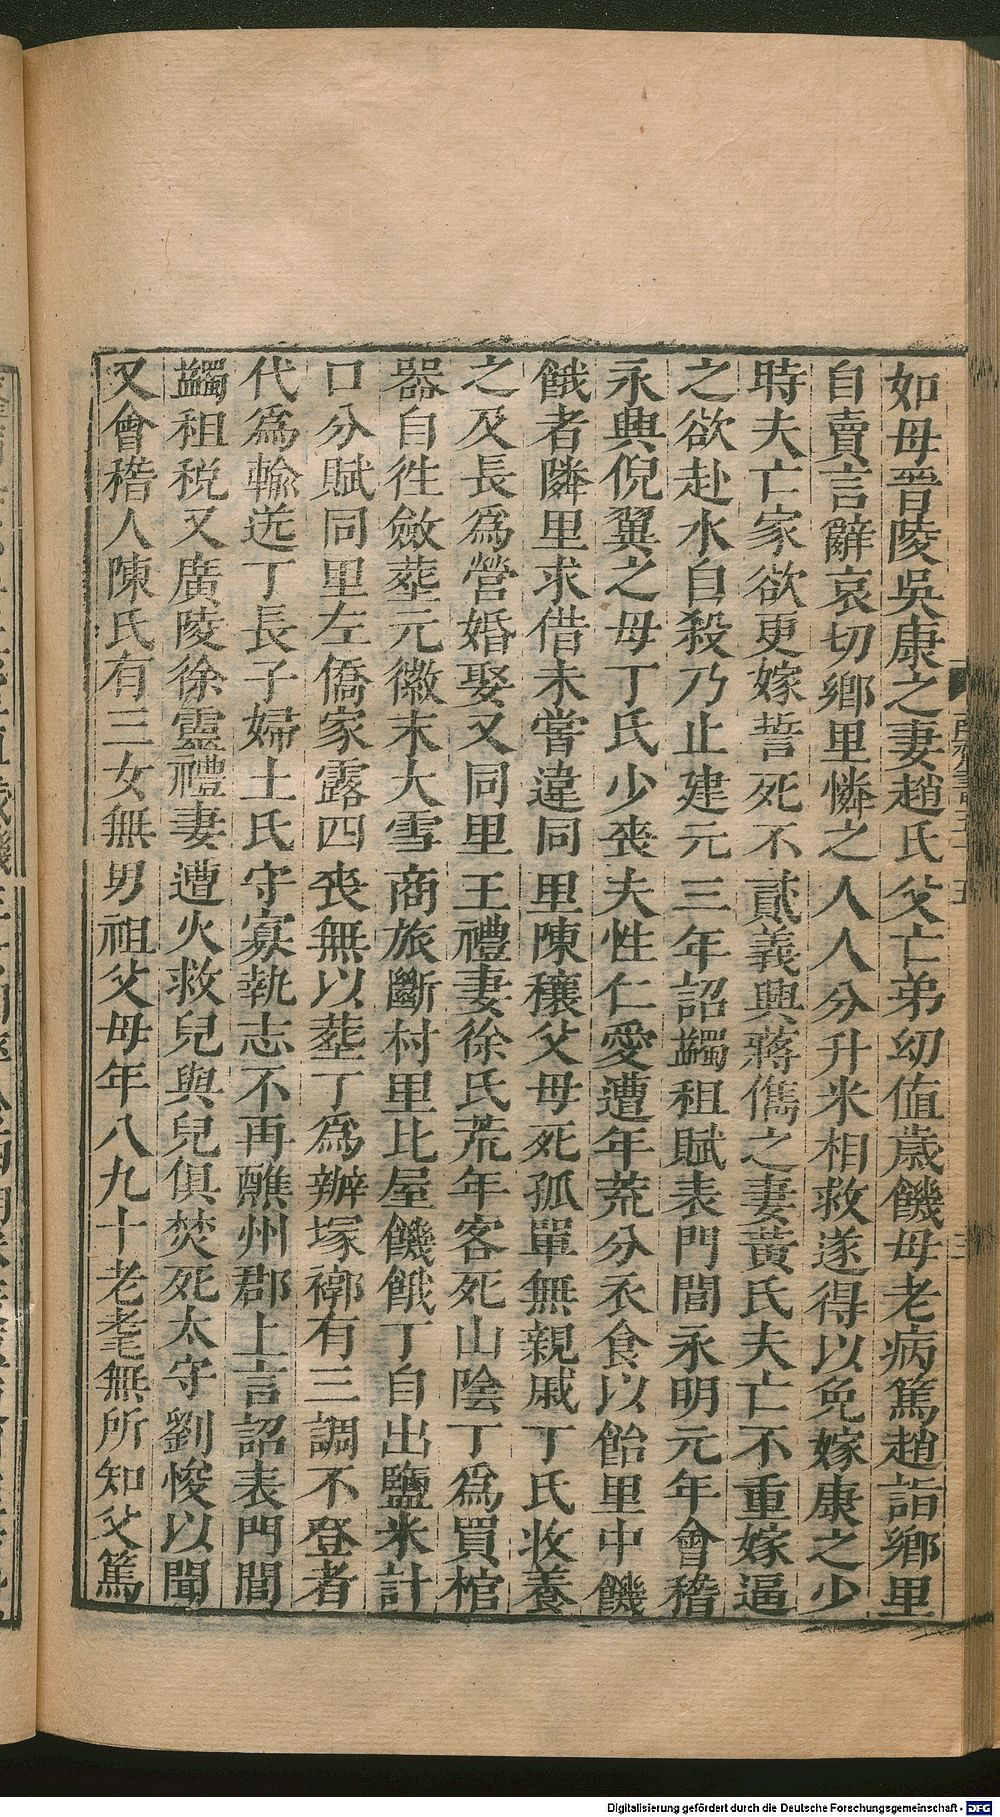 如母晉陵吳康之妻趙氏父亡弟幼值歲饑母老病篤趙詣鄉里
自賣言辭哀切鄉里憐之人人分升米相救遂得以免嫁康之少
時夫亡家欲更嫁誓死不貳義興蔣儁之妻黃氏夫亡不重嫁逼
之欲赴水自殺乃止建元三年詔蠲租賦表門閭永明元年會稽
永興倪翼之母丁氏少喪夫性仁愛遭年荒分衣食以飴里中饑
餓者隣里求借未嘗違同里陳穰父母死孤單無親戚丁氏收養
之及長爲營婚娶又同里王禮妻徐氏荒年客死山陰丁爲買棺
器自徃斂塟元徽末大雪商旅斷村里比屋饑餓丁自出鹽米計
口分賦同里左僑家露四喪無以塟丁爲辦塚槨有三調不登者
代爲輸送丁長子婦王氏守寡執志不再醮州郡上言詔表門閭
蠲租税又廣陵徐靈禮妻遭火救兒與兒俱焚死太守劉悛以聞
又會稽人陳氏有三女無男祖父母年八九十老耄無所知父篤
Digitalisierung gefördert durch die Deutsche Forschungsgemeinschaft - DFG